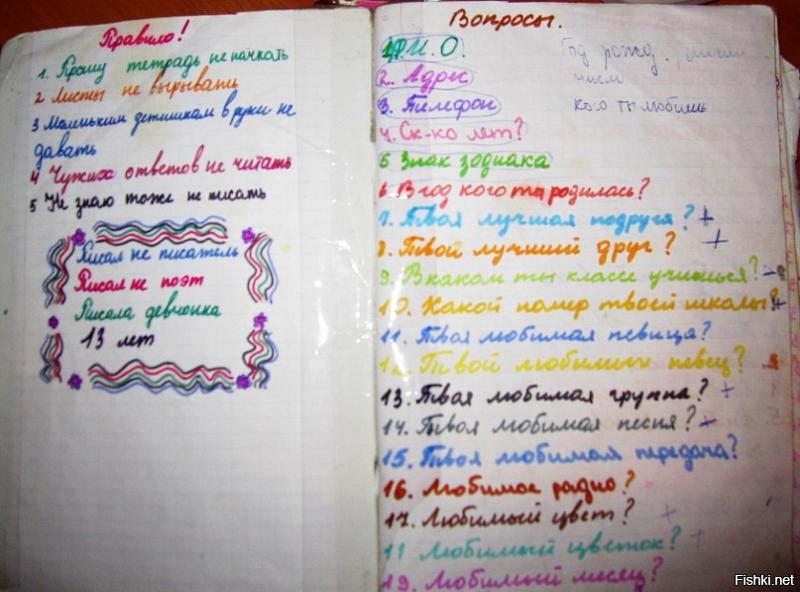 Правило!
1. Прошу тетрадь не пачкать
2 Листы не вырывать
3 Маленьким детишкам в руки не
давать
4 Чужих ответов не читать
5 Не знаю тоже не писать
Писал не писатель
Писал не поэт
Писала девчонка
13 лет
Вопросы.
1. Ф.И.О.
2. Адрес
3. Телефон
4. Ск-ко лет?
5 Знак зодиака
6 В год кого ты родилась?
7. Твоя лучшая подруга? +
8. Твой лучший друг? +
9. В каком ты классе учишься?
10. Какой номер твоей школы? +
11. Твоя любимая певица?
12. Твой любимый певец?
13. Твоя любимая группа? +
14. Твоя любимая песня? +
15. Твоя любимая передача?
16. Любимое радио?
17. Любимый цвет? +
11 Любимый цветок? +
19. Любимый месяц?
Год рожд.,
число
кого ты любишь
Fishki.net